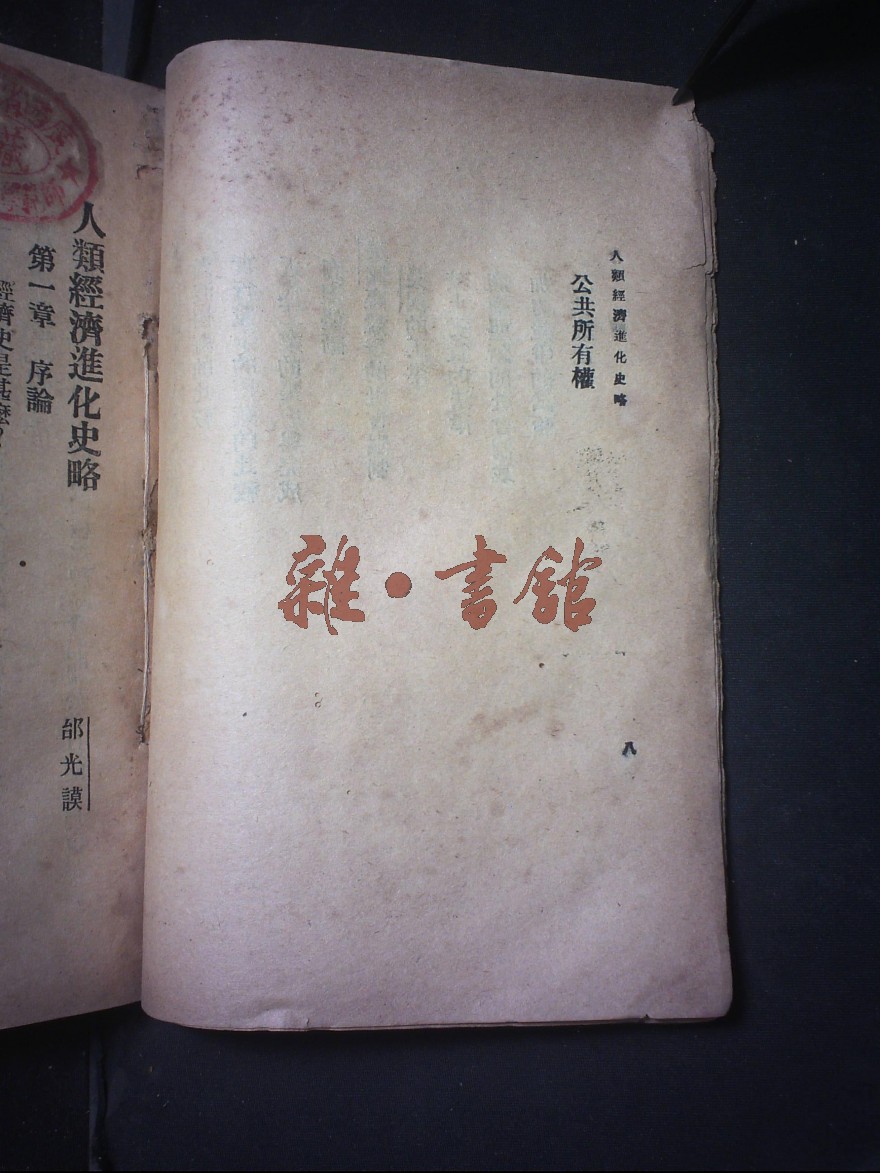 人類經濟進化史略
公共所有權
八
雜•書館
人類經濟進化史略
邰光謨
第一章 序論
經濟史是甚麽？
藏